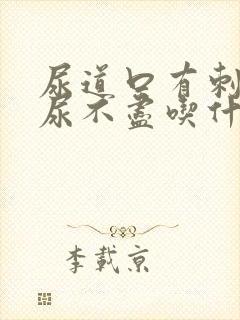 尿道口有刺
尿不盡喫什
李載京